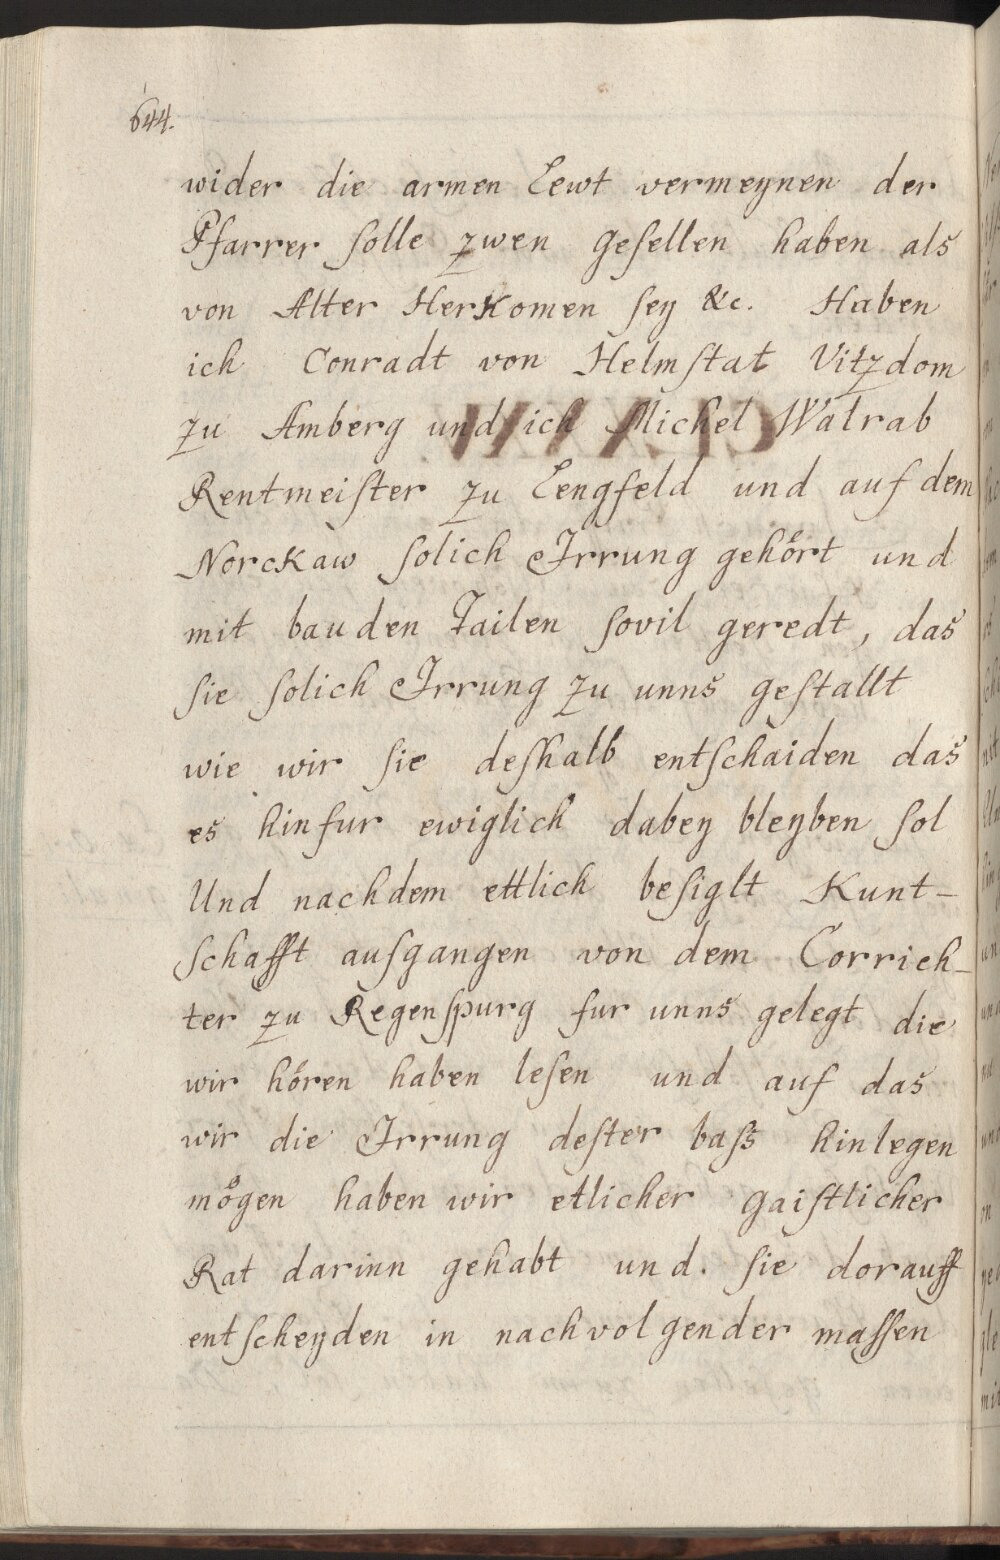 644.
wider die armen Lewt vermeynen der
Pfarrer ſolle zwen geſellen haben als
von Alter Herkomen ſey &c. Haben
ich Conradt von Helmſtat Vitzdom
zu Amberg und ich Michel Walrab
Rentmeiſter zu Lengfeld und auf dem
Norckaw ſolich Irrung gehört und
mit bauden Tailen ſovil geredt, das
ſie ſolich Irrung zu unns geſtallt
wie wir ſie deſhalb entſchaiden das
es hinfur ewiglich dabey bleyben ſol
Und nachdem ettlich beſiglt Kunt-
ſchafft auſgangen von dem Corrich-
ter zu Regenſpurg fur unns gelegt die
wir hören haben leſen und auf das
wir die Irrung deſter baſs hinlegen
mögen haben wir etlicher gaiſtlicher
Rat darinn gehabt und. ſie dorauff
entſcheyden in nachvolgender maſſen